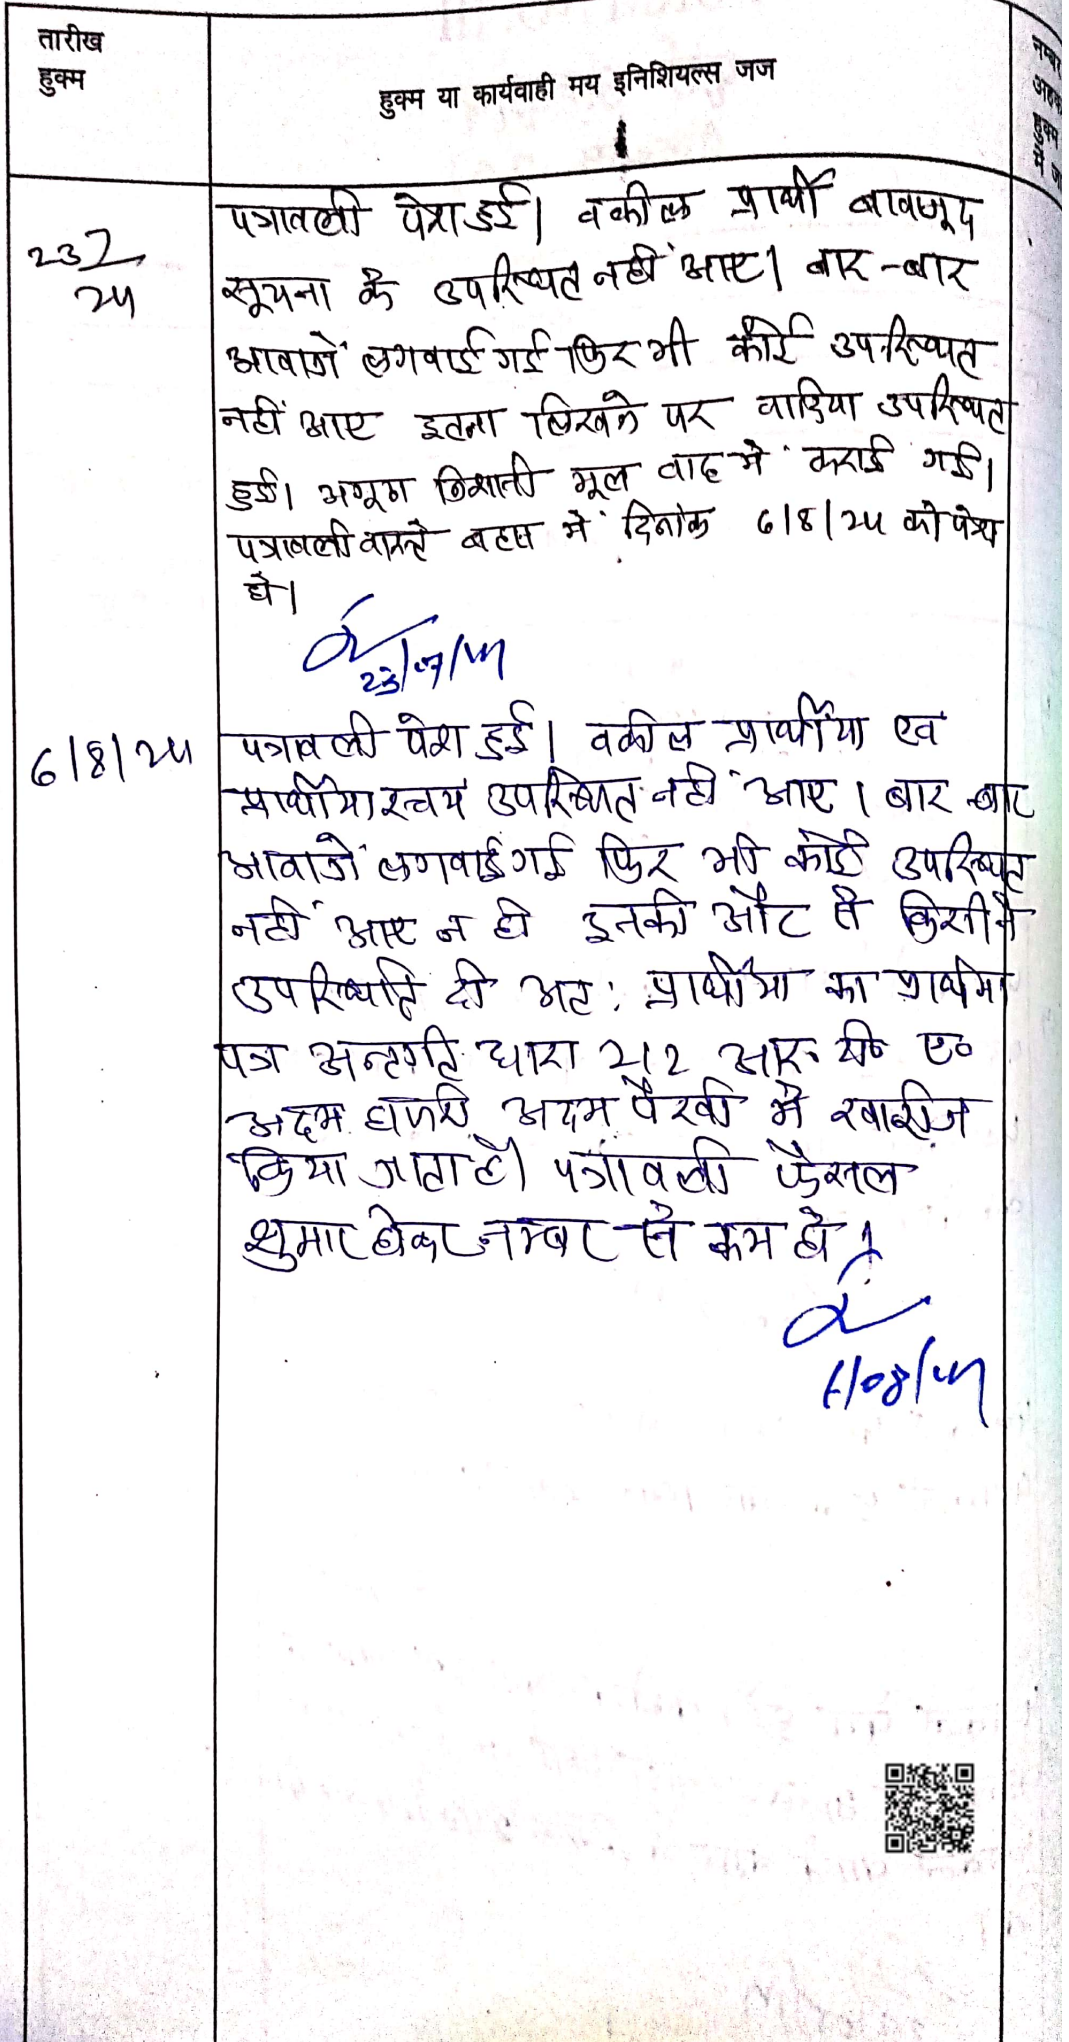 तारीख
हुक्म
हुक्म या कार्यवाही मय इनिशियल्स जज
नम्बर
हुक्म
में
23/7
24
पत्रावली पेश हुई। वकील प्रार्थी बावजूद
सूचना के उपस्थित नहीं आए। बार-बार
आवाजें लगवाई गई फिर भी कोई उपस्थित
नहीं आए इतना लिखने पर वादिया उपस्थित
हुई। अंगूठा निशानी मूल वाद में कराई गई।
पत्रावली वास्ते बहस में दिनांक 6/8/24 को पेश
हो।
23/07/24
6/8/24
पत्रावली पेश हुई। वकील प्रार्थीया एवं
प्रार्थीया स्वयं उपस्थित नहीं आए। बार-बार
आवाजें लगवाई गई फिर भी कोई उपस्थित
नहीं आए न ही इनकी ओर से किसी ने
उपस्थिति दी अतः प्रार्थीया का प्रार्थना
पत्र अन्तर्गत धारा 212 आर. टी० ए०
अदम हाजरी अदम पैरवी में खारीज
किया जाता है। पत्रावली फैसल
शुमार होकर नम्बर से कम हो।
6/08/24